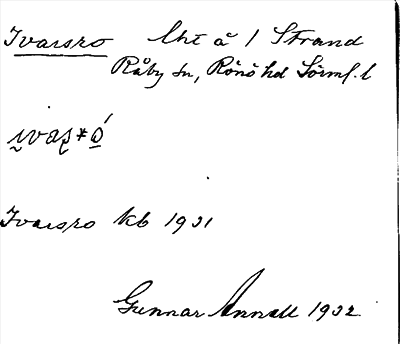 Ivarsro lht å 1 Strand
Råby sn, Rönö hd Sörml. l
Ivarsro kb 1931
Gunnar Annell 1932